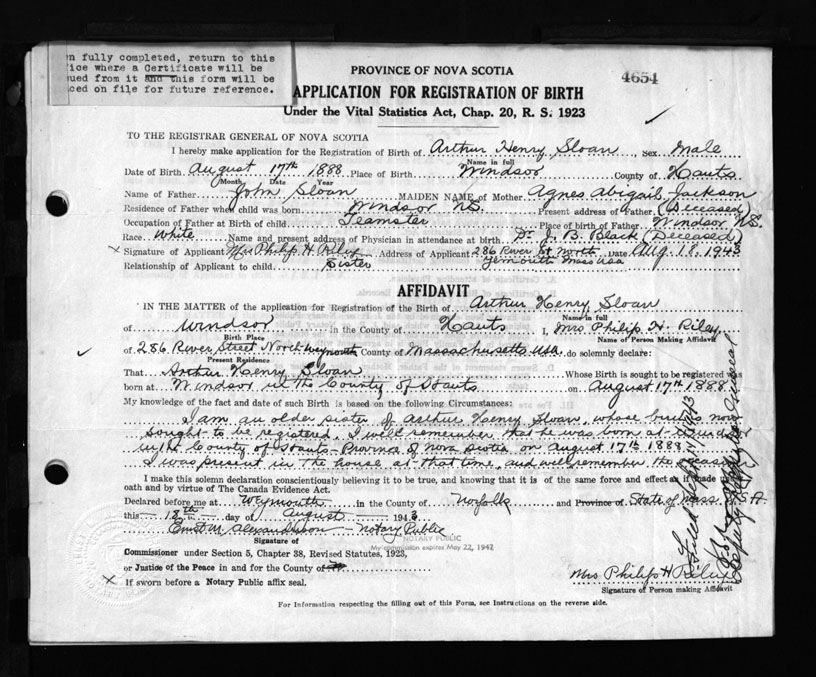 n fully completed, return to this
ice where a Certificate will be
ued from it and this form will be
ced on file for future reference.
4654
PROVINCE OF NOVA SCOTIA
APPLICATION FOR REGISTRATION OF BIRTH
Under the Vital Statistics Act, Chap. 20, R. S. 1923
TO THE REGISTRAR GENERAL OF NOVA SCOTIA
I hereby make application for the Registration of Birth of Arthur Henry Sloan Sex Male
Name in full
Date of Birth August 17th 1888 Place of Birth Windsor County of Hants
Month Date Year
Name of Father John Sloan MAIDEN NAME of Mother Agnes Abigail Jackson
Residence of Father when child was born Windsor NS. Present address of Father (Deceased)
Occupation of Father at Birth of child Teamster Place of birth of Father Windsor N.S.
Race White Name and present address of Physician in attendance at birth Dr J. B. Black (Deceased)
x Signature of Applicant Mrs Philip H Riley Address of Applicant 286 River St North Date Aug. 18. 1943
Relationship of Applicant to child Sister Weymouth Mass USA
AFFIDAVIT
IN THE MATTER of the application for Registration of the Birth of Arthur Henry Sloan
Name in full
of Windsor in the County of Hants I, Mrs Philip H. Riley
Birth Place Name of Person Making Affidavit
of 286 River Street North Weymouth County of Massachusetts USA, do solemnly declare:
Present Residence
That Arthur Henry Sloan Whose Birth is sought to be registered was
born at Windsor in the County of Hants on August 17th 1888
My knowledge of the fact and date of such Birth is based on the following Circumstances:
I am an older sister of Arthur Henry Sloan, whose birth is now
sought to be registered. I well remember that he was born at Windsor
in the County of Hants - Province of Nova Scotia on August 17th 1888
I was present in the house at that time, and well remember the occasion
I make this solemn declaration conscientiously believing it to be true, and knowing that it is of the same force and effect as if made under
oath and by virtue of The Canada Evidence Act.
Declared before me at Weymouth in the County of Norfolk and Province of State of Mass U.S.A.
this 18th day of August 1943
Notary Public
Signature of
NOTARY PUBLIC
My commission expires May 22, 1947
Commissioner under Section 5, Chapter 38, Revised Statutes, 1923,
or Justice of the Peace in and for the County of
x If sworn before a Notary Public affix seal.
Mrs Philip H Riley
Signature of Person making Affidavit
For Information respecting the filling out of this Form, see Instructions on the reverse side.